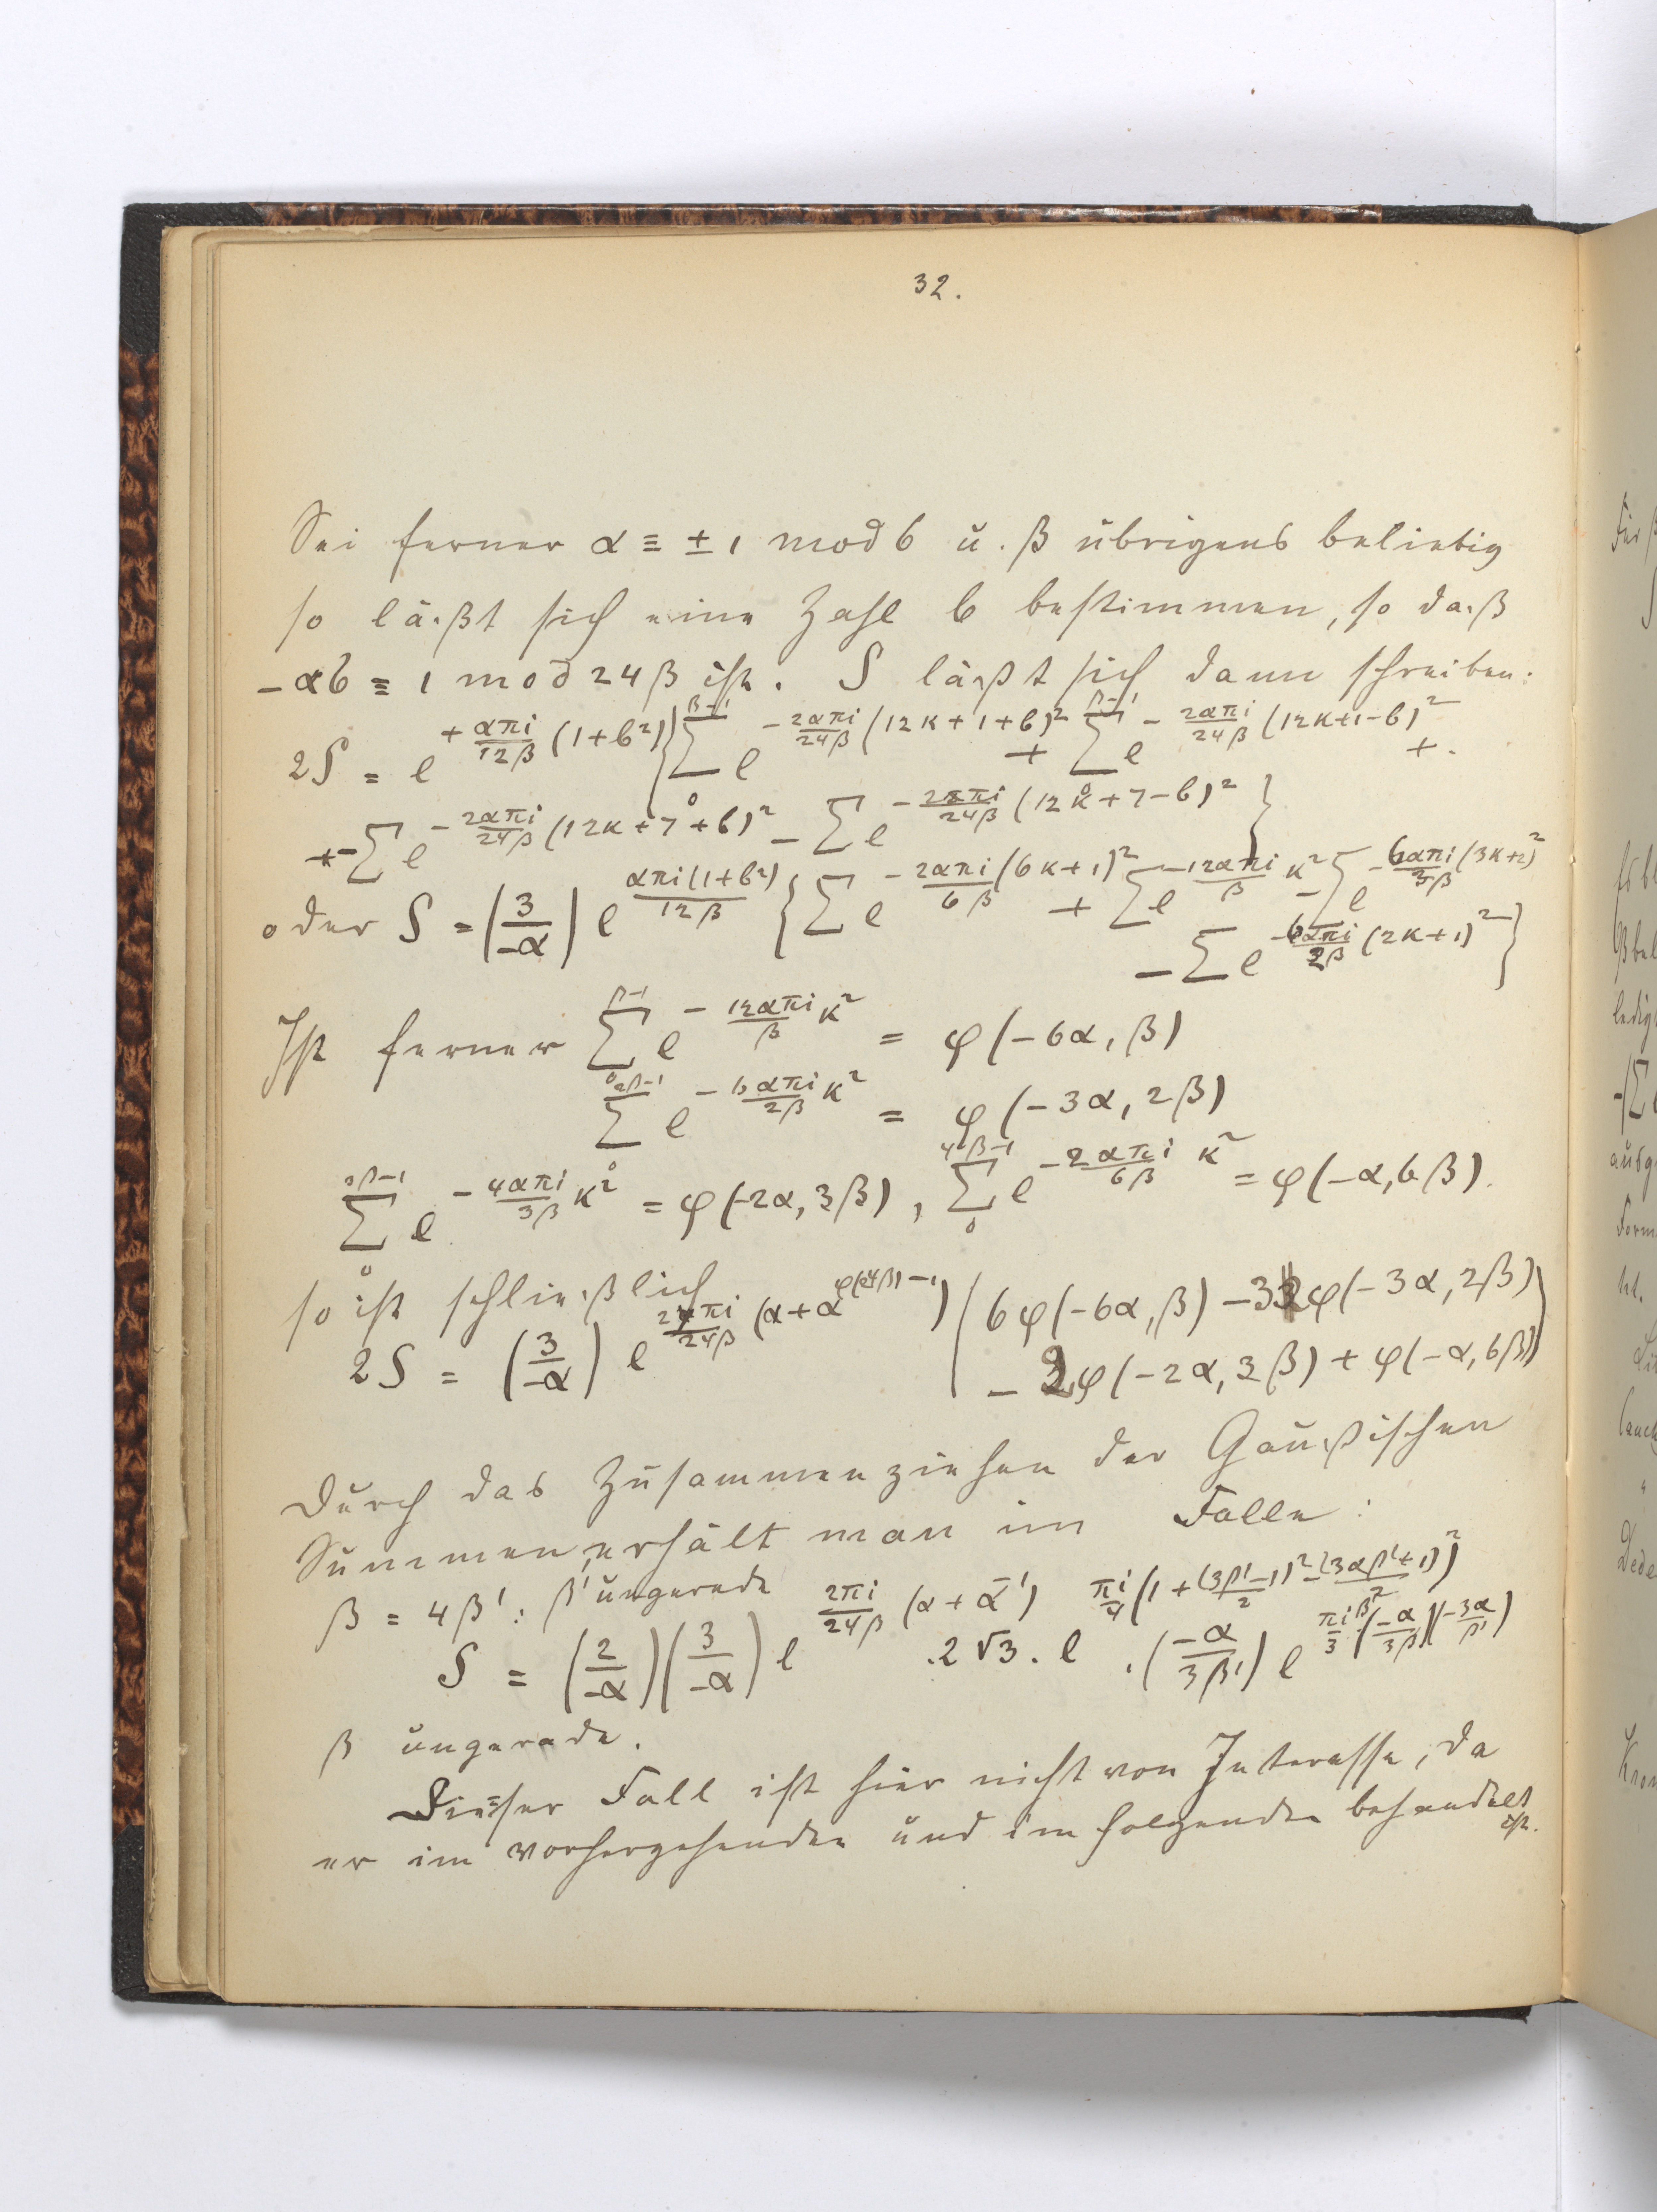 32.
Sei ferner α ≡ ± 1 mod 6 u. β übrigens beliebig
so läßt sich eine Zahl b bestimmen, so daß
-αb ≡ 1 mod 24β ist. S läßt sich dann schreiben:
2S = e^{+\frac{απi}{12β}(1+b²)} { \sum_0^{β-1} e^{-\frac{2απi}{24β}(12κ+1+b)²} + \sum_0^{β-1} e^{-\frac{2απi}{24β}(12κ+1-b)²} +.
- \sum e^{-\frac{2απi}{24β}(12κ+7+b)²} - \sum e^{-\frac{2απi}{24β}(12κ+7-b)²} }
oder S = (\frac{3}{-α}) e^{\frac{απi(1+b²)}{12β}} { \sum e^{-\frac{2απi}{6β}(6κ+1)²} + \sum e^{-\frac{12απi}{β}κ²} - \sum e^{-\frac{6απi}{3β}(3κ+2)²}
- \sum e^{-\frac{6απi}{2β}(2κ+1)²} }
Ist ferner \sum_0^{β-1} e^{-\frac{12απi}{β}κ²} = φ(-6α, β)
\sum_0^{2β-1} e^{-\frac{6απi}{2β}κ²} = φ(-3α, 2β)
\sum_0^{3β-1} e^{-\frac{4απi}{3β}κ²} = φ(-2α, 3β), \sum_0^{4β-1} e^{-\frac{2απi}{6β}κ²} = φ(-α, 6β).
so ist schließlich
2S = (\frac{3}{-α}) e^{\frac{2πi}{24β}(α+α^{φ(24β)-1})} (6φ(-6α, β) - 3φ(-3α, 2β)
- 2φ(-2α, 3β) + φ(-α, 6β))
Durch das Zusammenziehen der Gaußischen
Summen, erhält man im Falle:
β = 4β': β' ungerade
S = (\frac{2}{-α})(\frac{3}{-α}) e^{\frac{2πi}{24β}(α+α^{-1})} .2√3. e^{\frac{πi}{4}(1+\frac{(3β'-1)²-(3αβ'+1)²}{2})} .(\frac{-α}{3β'}) e^{\frac{πi}{3}β²(\frac{-α}{3β})(\frac{-3α}{β'})}
β ungerade.
Dieser Fall ist hier nicht von Interesse, da
er im vorhergehenden und im folgenden behandelt
ist.